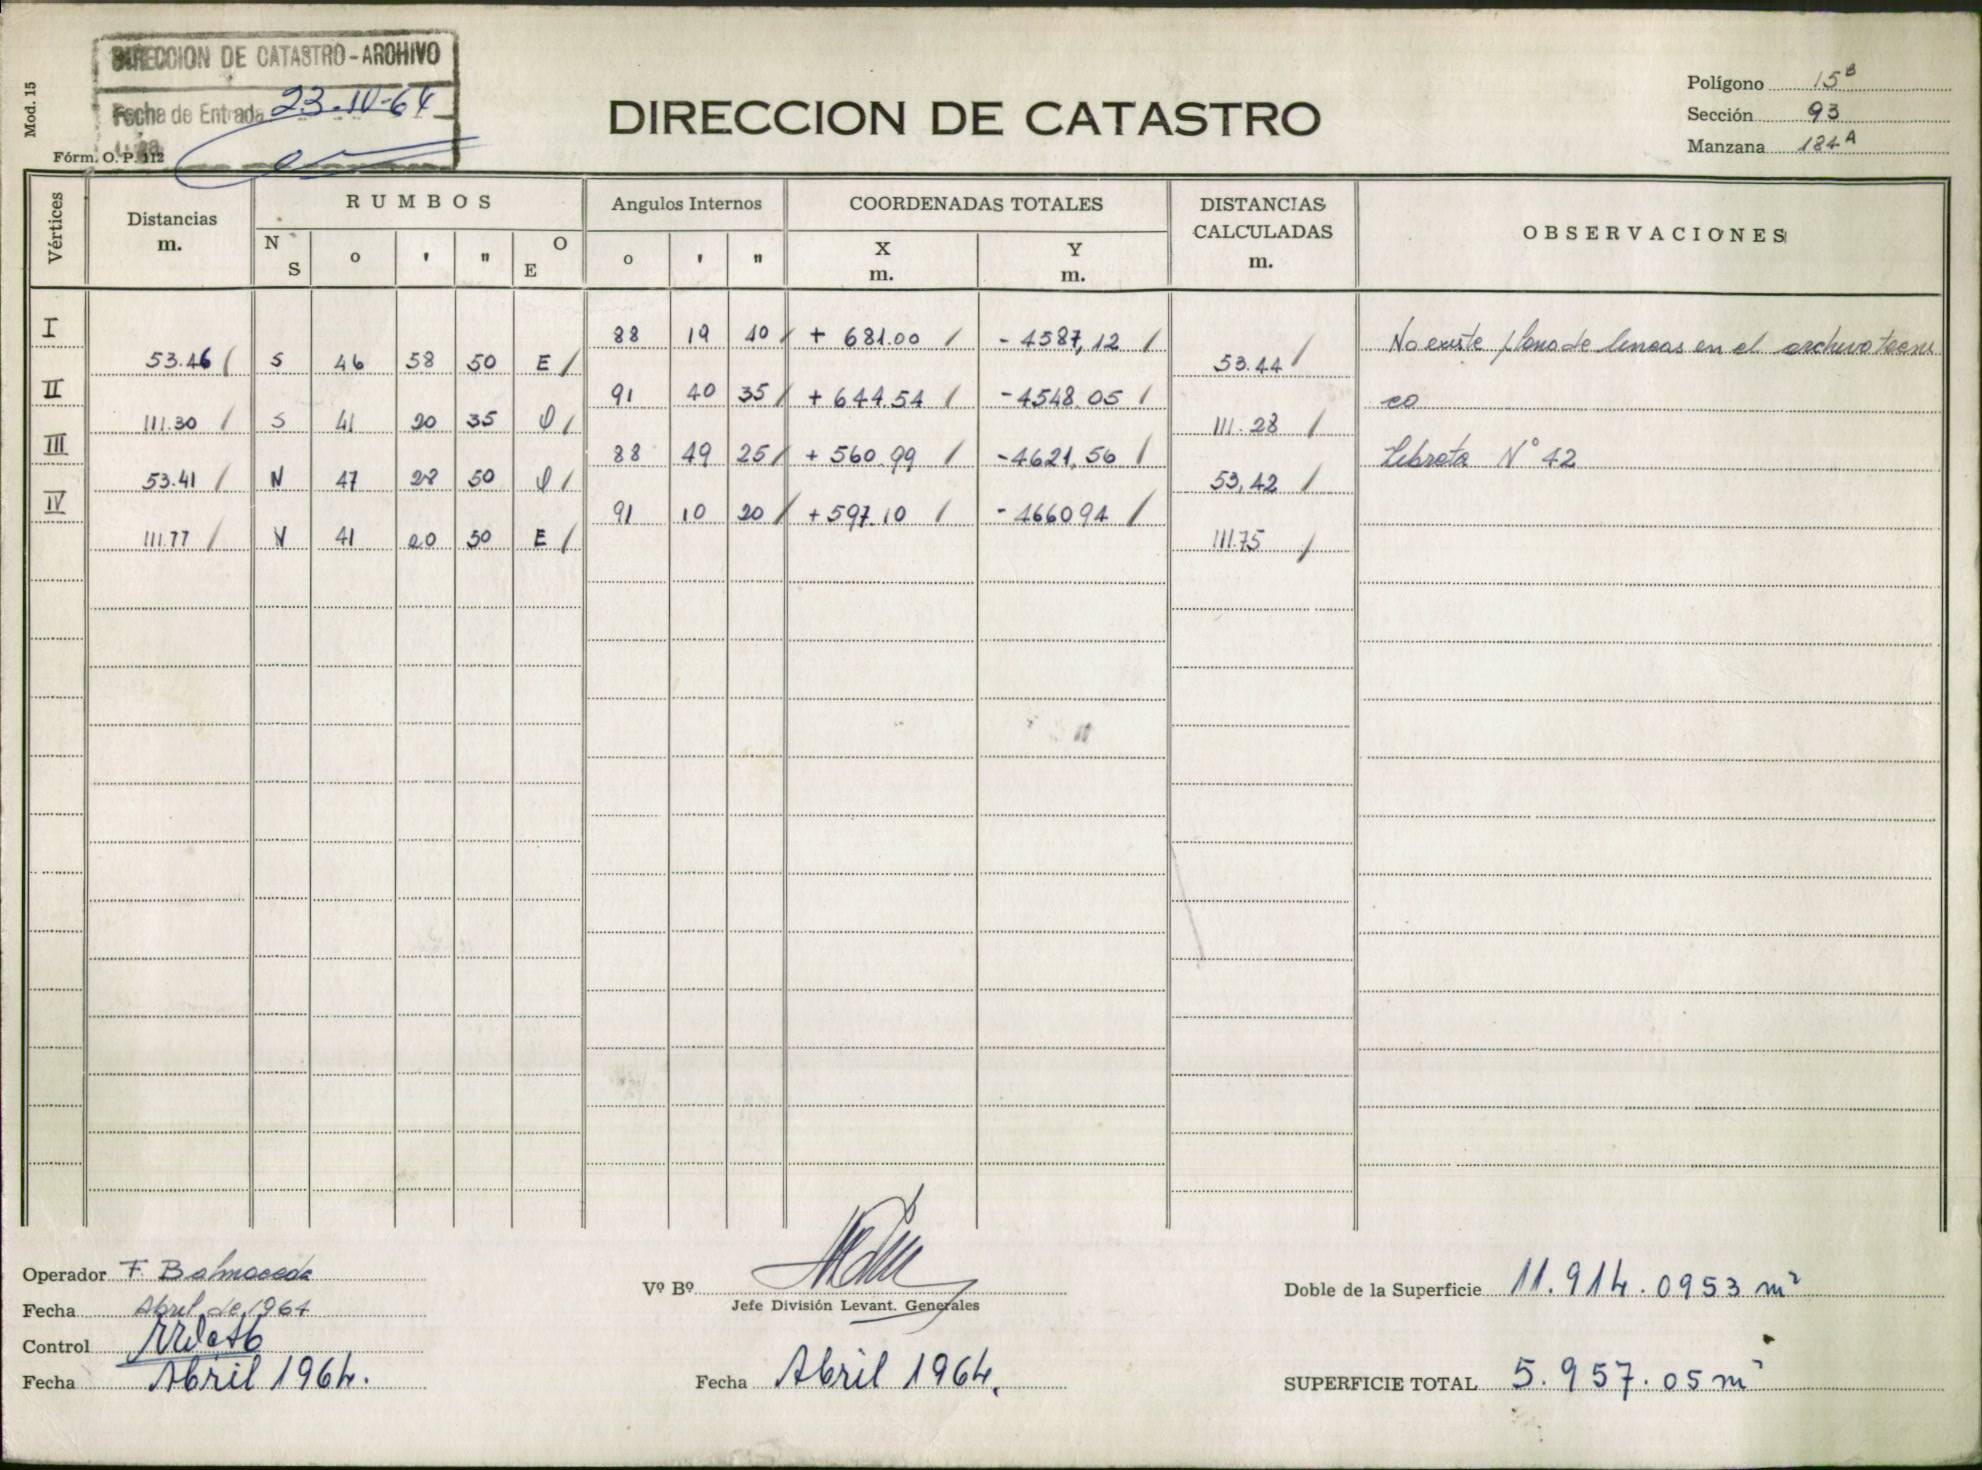 DIRECCION DE CATASTRO - ARCHIVO
Fecha de Entrada 23-IV-64
Mod. 15
Fórm. O. P. 112
DIRECCION DE CATASTRO
Polígono 15ᴮ
Sección 93
Manzana 184ᴬ
Vértices
Distancias
m.
RUMBOS
N S o ' " O E
Angulos Internos
o ' "
COORDENADAS TOTALES
X m. Y m.
DISTANCIAS CALCULADAS
m.
OBSERVACIONES
I 88 19 10 + 681.00 - 4587,12 No existe plano de lineas en el archivo tecni
53.46 S 46 58 50 E 53.44
II 91 40 35 + 644.54 - 4548.05 co
111.30 S 41 20 35 O 111.28
III 88 49 25 + 560.99 - 4621,56 Libreta N° 42
53.41 N 47 28 50 O 53,42
IV 91 10 20 + 597.10 - 466094
111.77 N 41 20 30 E 111.75
Operador F. Balmaceda
Fecha Abril de 1964
Control
Fecha Abril 1964.
Vº Bº
Jefe División Levant. Generales
Fecha Abril 1964.
Doble de la Superficie 11.914.0953 m²
SUPERFICIE TOTAL 5.957.05 m²